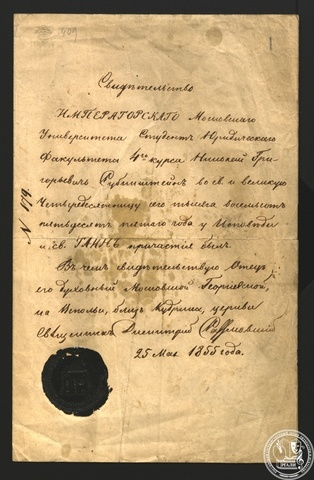 409
1
Свидѣтельство
ИМПЕРАТОРСКАГО Московскаго
Университета Студентъ Юридическаго
Факультета 4го курса Николай Гри-
горьевичъ Рубинштейнъ во св. и великую
Четыредесятницу сего тысяча восемьсотъ
пятьдесятъ пятаго года у Исповѣди
и св. ТАИНЪ причастія былъ.
Въ чемъ свидѣтельствую Отецъ
его духовный Московской Георгіевской,
на Вспольи, близъ Кудрина, церкви
Священникъ Димитрій
25 Мая 1855 года.
N 179.
РГАЛИ